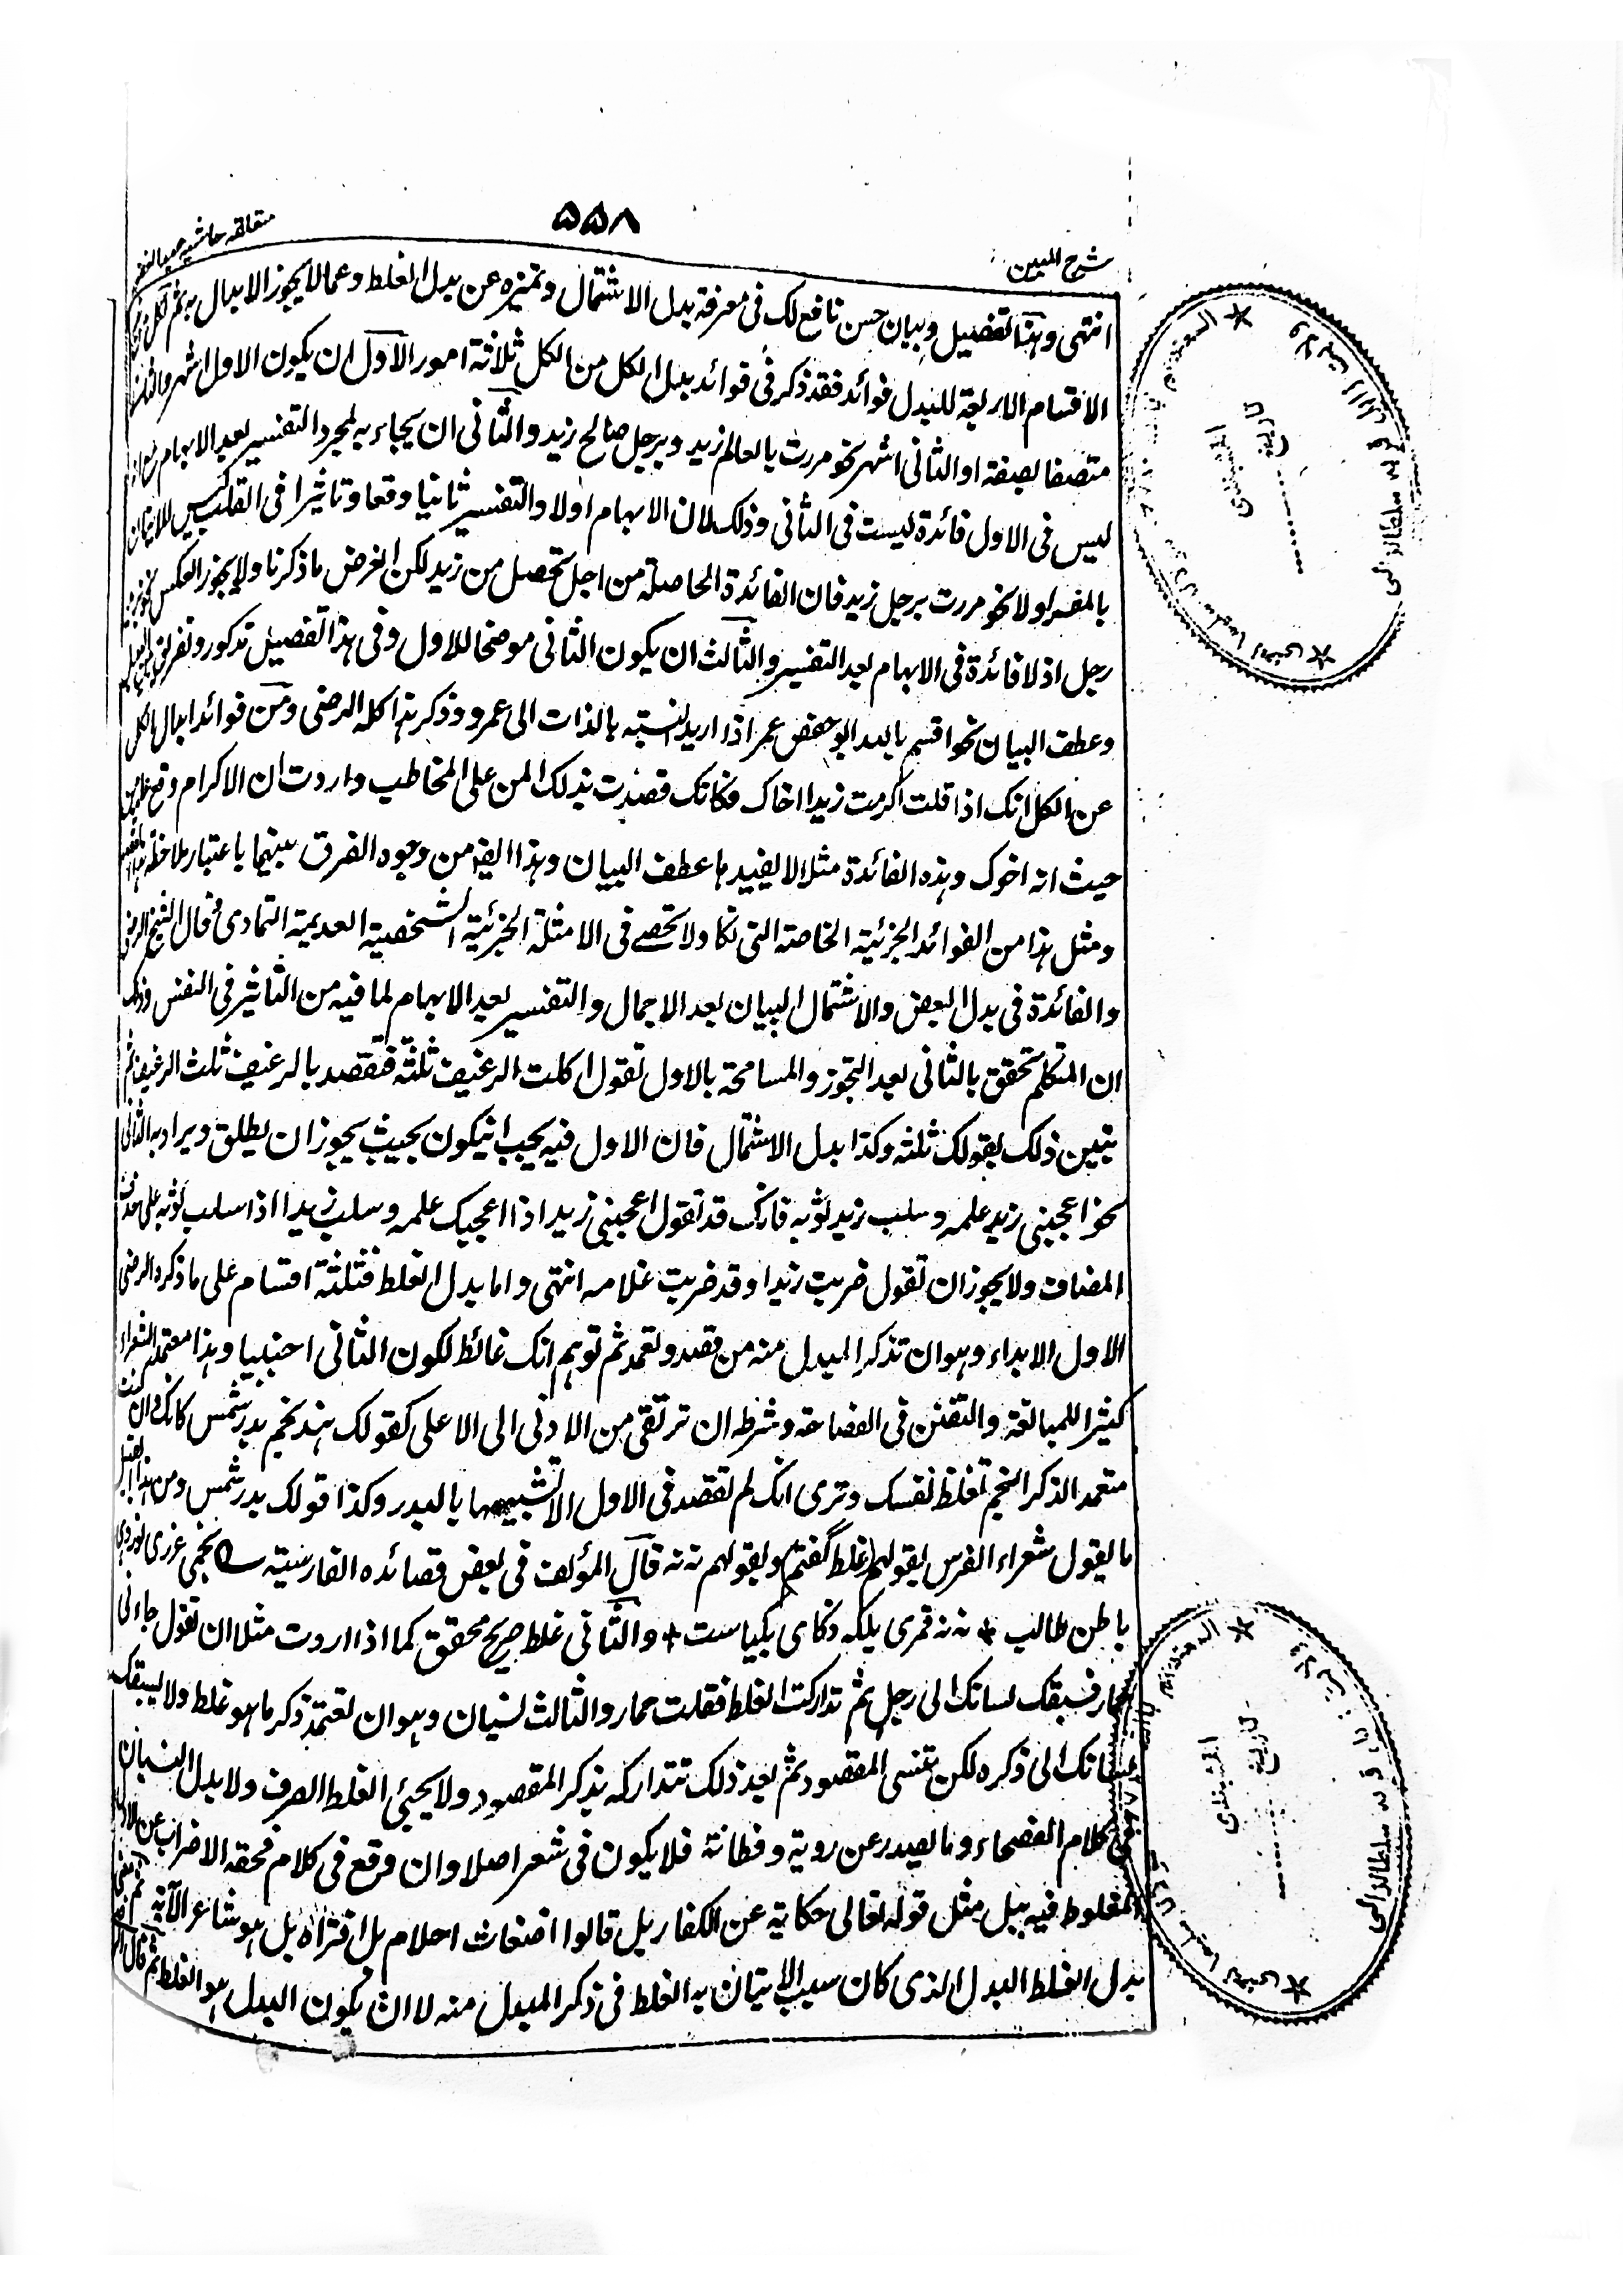 ٥٥٨
شرح المبين
متعلقه حاشيه عبد الغفور
انتهى وهذا تفصيل وبيان حسن نافع لك فى معرفة بدل الاشتمال وتميزه عن بدل الغلط وعما لا يجوز الابدال به ثم لكل من
الاقسام الاربعة للبدل فوائد فقد ذكر فى فوائد بدل الكل من الكل ثلاثة امور الاول ان يكون الاول اشهر والثانى
متصفا بصفة او الثانى اشهر نحو مررت بالعالم زيد وبرجل صالح زيد والثانى ان يجاء به لمجرد التفسير بعد الابهام
ليس فى الاول فائدة ليست فى الثانى وذلك لان الابهام اولا والتفسير ثانيا وقعا وتاثيرا فى القلب ليس للاتيان
بالمفسر اولا نحو مررت برجل زيد فان الفائدة الحاصلة من اجل تحصل من زيد لكن الغرض ما ذكرنا ولا يجوز العكس نحو بزيد
رجل اذ لا فائدة فى الابهام بعد التفسير والثالث ان يكون الثانى موضحا للاول وفى هذا تفصيل تذكور وتفريق
وعطف البيان نحو اقسم بالله ابو حفص عمر اذا اريد نسبته بالذات الى عمر وذكر هذا كله الرضى ومن فوائد ابدال الكل
عن الكل انك اذا قلت اكرمت زيدا اخاك فكانك قصدت بذلك المن على المخاطب واردت ان الاكرام وقع
حيث انه اخوك وهذه الفائدة مثلا لا يفيدها عطف البيان وهذا ايضا من وجوه الفرق بينهما باعتبار ملاحظة
ومثل هذا من الفوائد الجزئية الخاصته التى تكاد لا تحصے فى الامثلة الجزئية الشخصية العديمية التمادى قال الشيخ الرضى
والفائدة فى بدل البعض والاشتمال البيان بعد الاجمال والتفسير بعد الابهام لما فيه من التاثير فى النفس وذلك
ان المتكلم يتحقق بالثانى بعد التجوز والمسامحة بالاول تقول اكلت الرغيف ثلثه فتقصد بالرغيف ثلث الرغيف ثم
تبين ذلك بقولك ثلثه وكذا بدل الاشتمال فان الاول فيه يجب انيكون بحيث يجوز ان يطلق ويراد به الثانى
نحو اعجبنى زيد علمه وسلب زيد ثوبه فانك قد تقول اعجبنى زيد اذا اعجبك علمه وسلب زيدا اذا سلب ثوبه على حذف
المضاف ولا يجوز ان تقول ضربت زيدا وقد ضربت غلامه انتهى واما بدل الغلط فثلثة اقسام على ما ذكره الرضى
الاول الابداء وهو ان تذكر المبدل منه من قصد وتعمد ثم توهم انك غالط لكون الثانى اجنبيا وهذا معتمد الشعراء
كثيرا للمبالغة والتفنن فى الفصاحة وشرطه ان ترتقى من الادنى الى الاعلى كقولك هند نجم بدر شمس كانك وان كنت
متعمد الذكر النجم تغلط نفسك وترى انك لم تقصد فى الاول الا تشبيهها بالبدر وكذا قولك بدر شمس ومن هذا القبيل
ما يقول شعراء الفرس بقولهم غلط گفتم وبقولهم نه نه قال المؤلف فى بعض قصائده الفارسيته نجمى غررى نور ده
باطن طالب + نه نه قمرى بلکه ذكاى بكياست + والثانى غلط صريح محقق كما اذا اردت مثلا ان تقول جاءنى
حمار فسبقك لسانك الى رجل ثم تداركت الغلط فقلت حمار والثالث نسيان وهو ان تعتمد ذكر ما هو غلط ولا يسبقك
لسانك الى ذكره لكن تنسى المقصود ثم بعد ذلك تتداركه بذكر المقصود ولا يجئ الغلط الصرف ولا بدل النسيان
فى كلام الفصحاء وما يصدر عن روية وفطانة فلا يكون فى شعر اصلا وان وقع فى كلام فحقه الاضراب عن الاول
المغلوط فيه ببل مثل قوله تعالى حكاية عن الكفار بل قالوا اضغاث احلام بل افتراه بل هو شاعر الآية ثم معنى
بدل الغلط البدل الذى كان سبب الاتيان به الغلط فى ذكر المبدل منه لا ان يكون البدل هو الغلط ثم قال